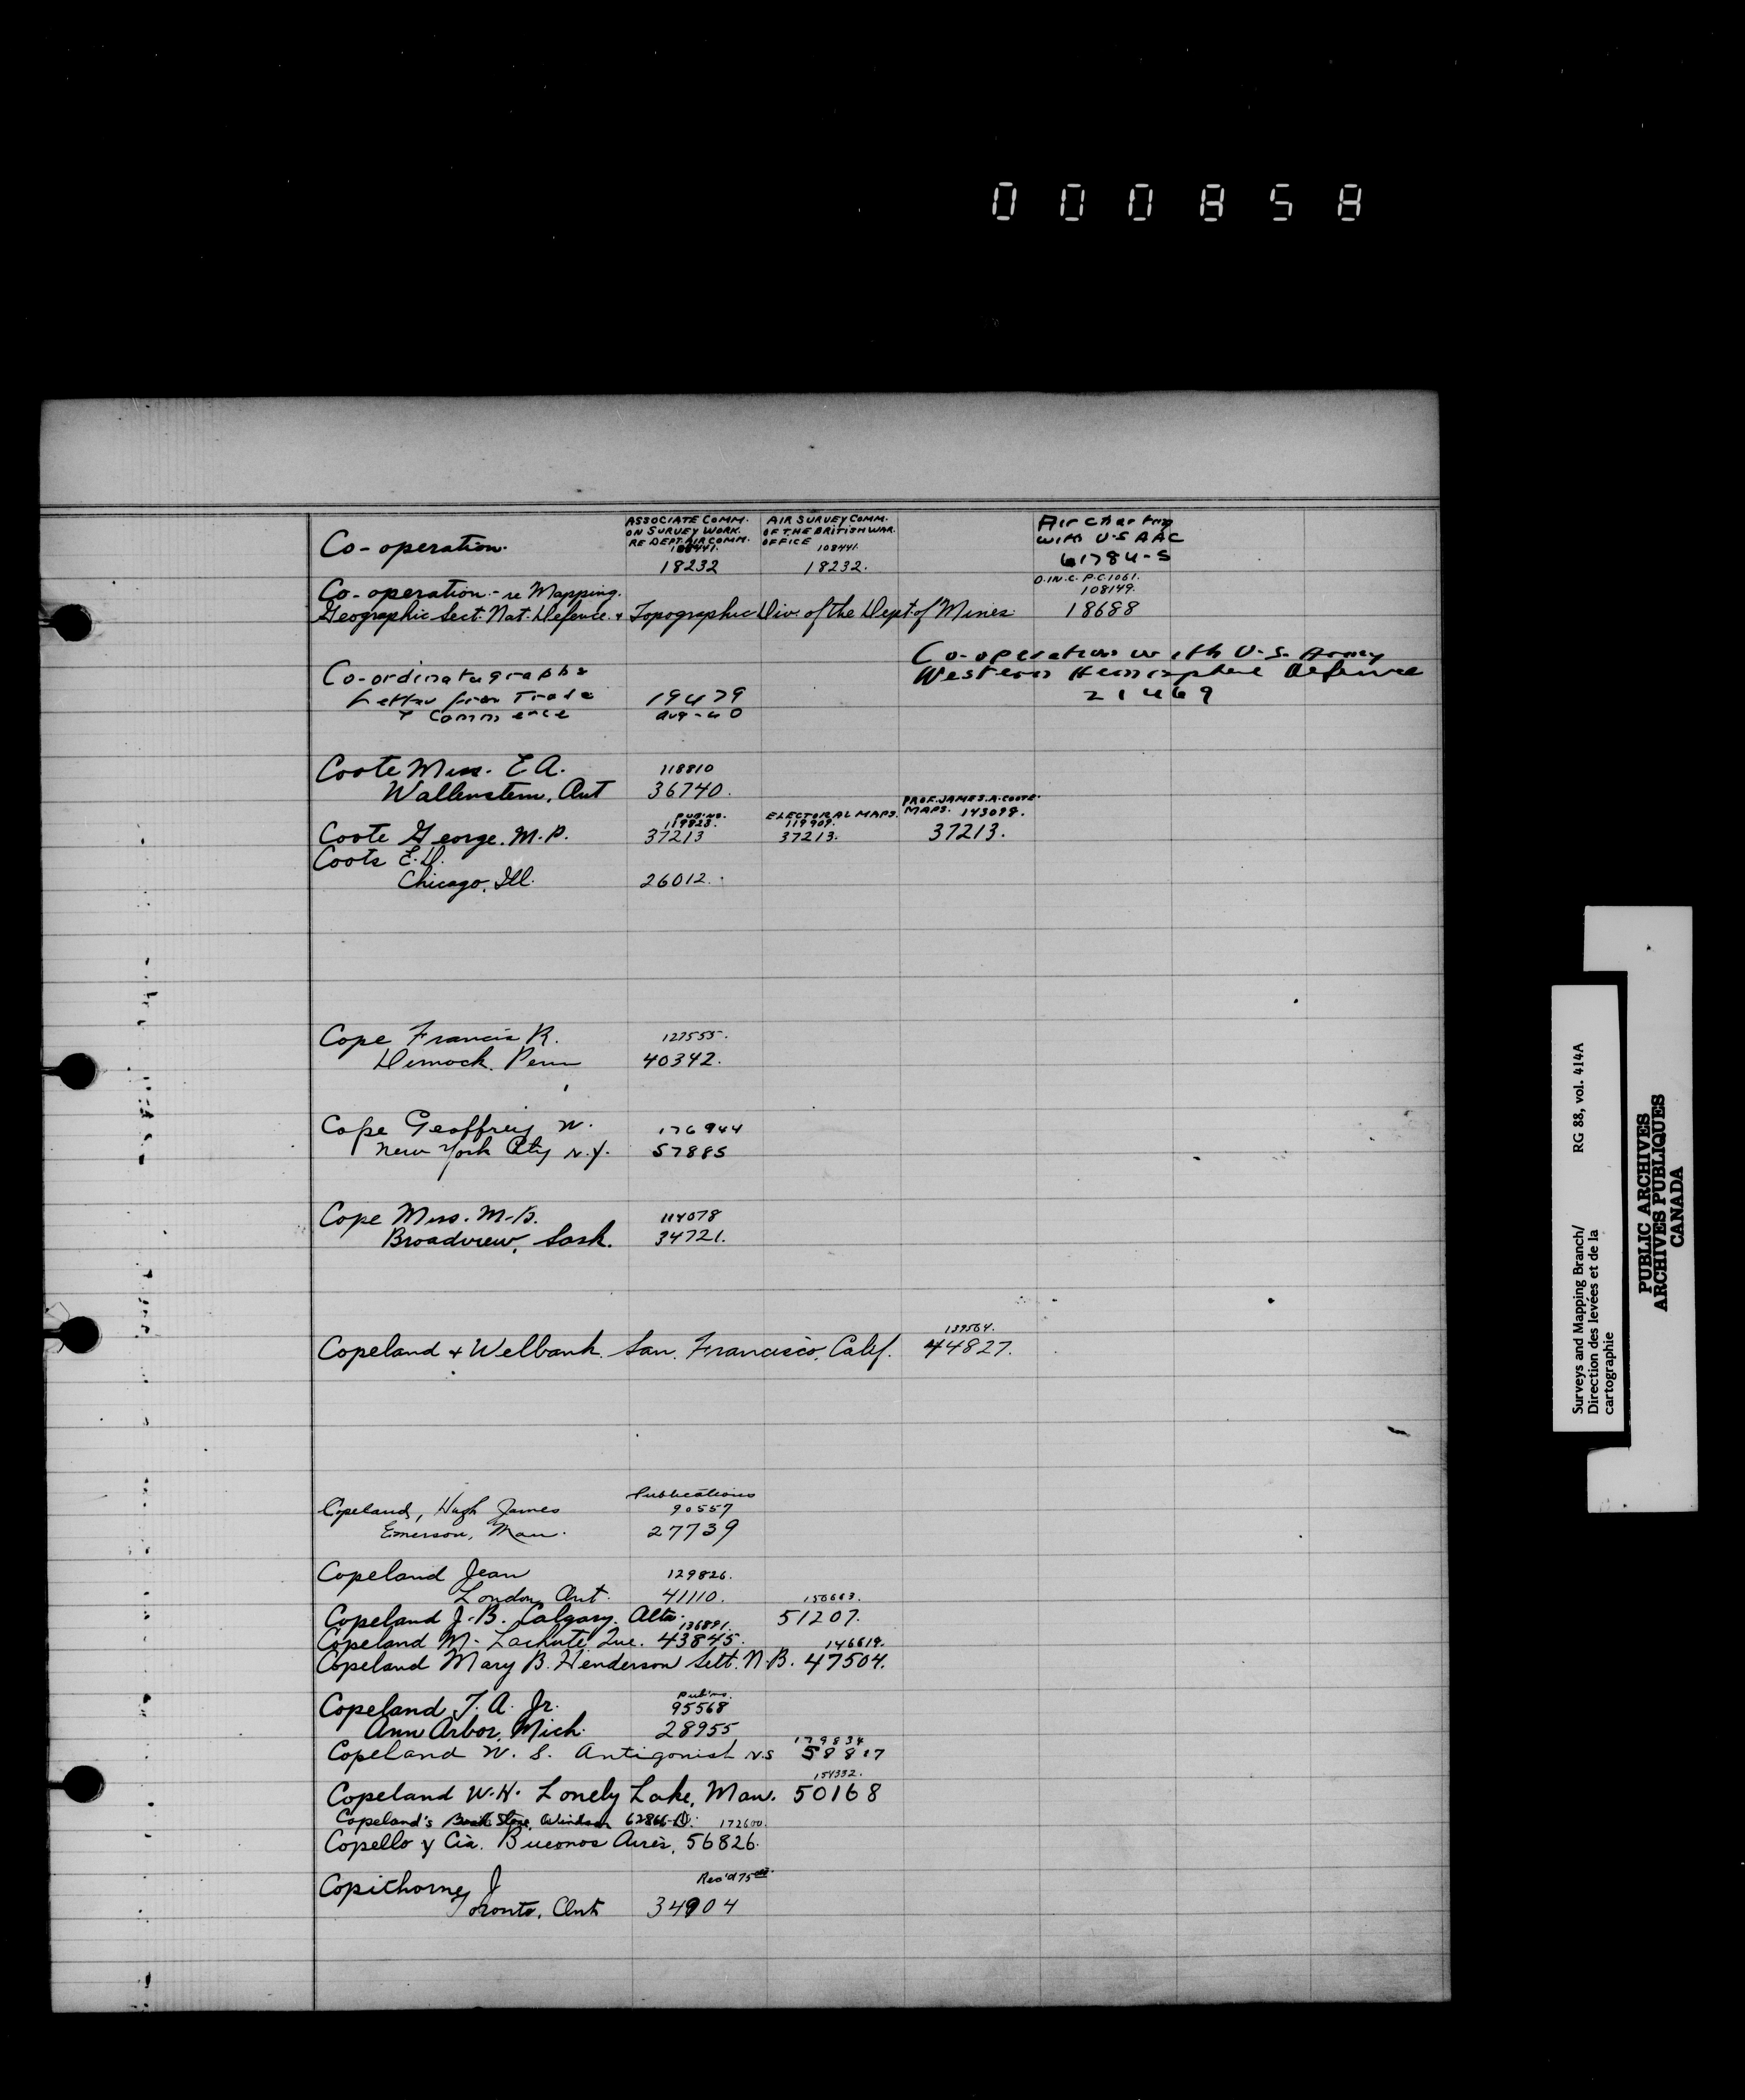 000858
Co-operation.
ASSOCIATE COMM.
ON SURVEY WORK.
RE DEPT. AIR COMM.
108441.
18232
AIR SURVEY COMM.
OF THE BRITISH WAR.
OFFICE 108441.
18232.
Air Charting
with U-S AAC
61784-S
Co-operation - re Mapping.
Geographic Sect. Nat. Defence. + Topographic Div. of the Dept. of Mines.
O.IN.C. P.C 1061.
108149.
18688
Co-operation with U.S. Army
Western Hemisphere Defence
21469
Co-ordinatographs
Letter from Trade
+ Commerce
19479
Aug-40
Coote Miss. E A.
118810
Wallenstein, Ont
36740.
Coote George. M.P.
Pub'ns.
119823.
37213
ELECTORAL MAPS.
119909.
37213.
PROF. JAMES. A. COOTE.
MAPS. 143098.
37213.
Coots E.D.
Chicago, Ill.
26012.
Cope Francis R.
127555.
Dimock. Penn
40342.
Cope Geoffrey W.
176944
New York City N.Y.
57885
Cope Miss. M.B.
114078
Broadview, Sask.
34721.
Copeland + Welbank. San. Francisco, Calif.
139564.
44827.
Copeland, Hugh James
Publications
90557
Emerson, Man.
27739
Copeland Jean
129826.
London, Ont.
41110.
Copeland J.B. Calgary. Alta.
51207.
Copeland M. Lachute Que. 43845.
136891.
Copeland Mary B. Henderson Sett. N.B. 47504.
146619.
Copeland T. A. Jr.
Pub'ns.
95568
Ann Arbor, Mich.
28955
Copeland W. S. Antigonish N.S
179834
58817
Copeland W.H. Lonely Lake, Man. 50168
154332.
Copeland's Book Store, Windsor 62866-D.
Copello y Cia. Buenos Aires, 56826.
172600.
Copithorne J
Rec'd 75
Toronto, Ont
34904
Surveys and Mapping Branch/
Direction des levées et de la
cartographie
RG 88, vol. 414A
PUBLIC ARCHIVES
ARCHIVES PUBLIQUES
CANADA